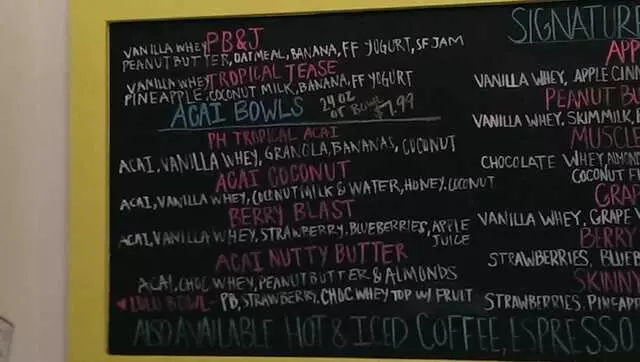 PB&J
VANILLA WHEY
PEANUT BUTTER, OATMEAL, BANANA, FF YOGURT, SF JAM
TROPICAL TEASE
VANILLA WHEY
PINEAPPLE, COCONUT MILK, BANANA, FF YOGURT
ACAI BOWLS 24 OZ or BOWL $7.99
PH TROPICAL ACAI
ACAI, VANILLA WHEY, GRANOLA, BANANAS, COCONUT
ACAI COCONUT
ACAI, VANILLA WHEY, COCONUT MILK & WATER, HONEY, COCONUT
BERRY BLAST
ACAI, VANILLA WHEY, STRAWBERRY, BLUEBERRIES, APPLE
JUICE
ACAI NUTTY BUTTER
ACAI, CHOC WHEY, PEANUT BUTTER & ALMONDS
LULU BOWL - PB, STRAWBERRY, CHOC WHEY TOP W/ FRUIT
ALSO AVAILABLE HOT & ICED COFFEE, ESPRESSO
SIGNATURE
APP
VANILLA WHEY, APPLE, CINN
PEANUT BU
VANILLA WHEY, SKIM MILK, B
MUSCLE
CHOCOLATE WHEY, ALMON
COCONUT F
GRA
VANILLA WHEY, GRAPE
BERRY
STRAWBERRIES, BLUEB
SKINNY
STRAWBERRIES, PINEAP